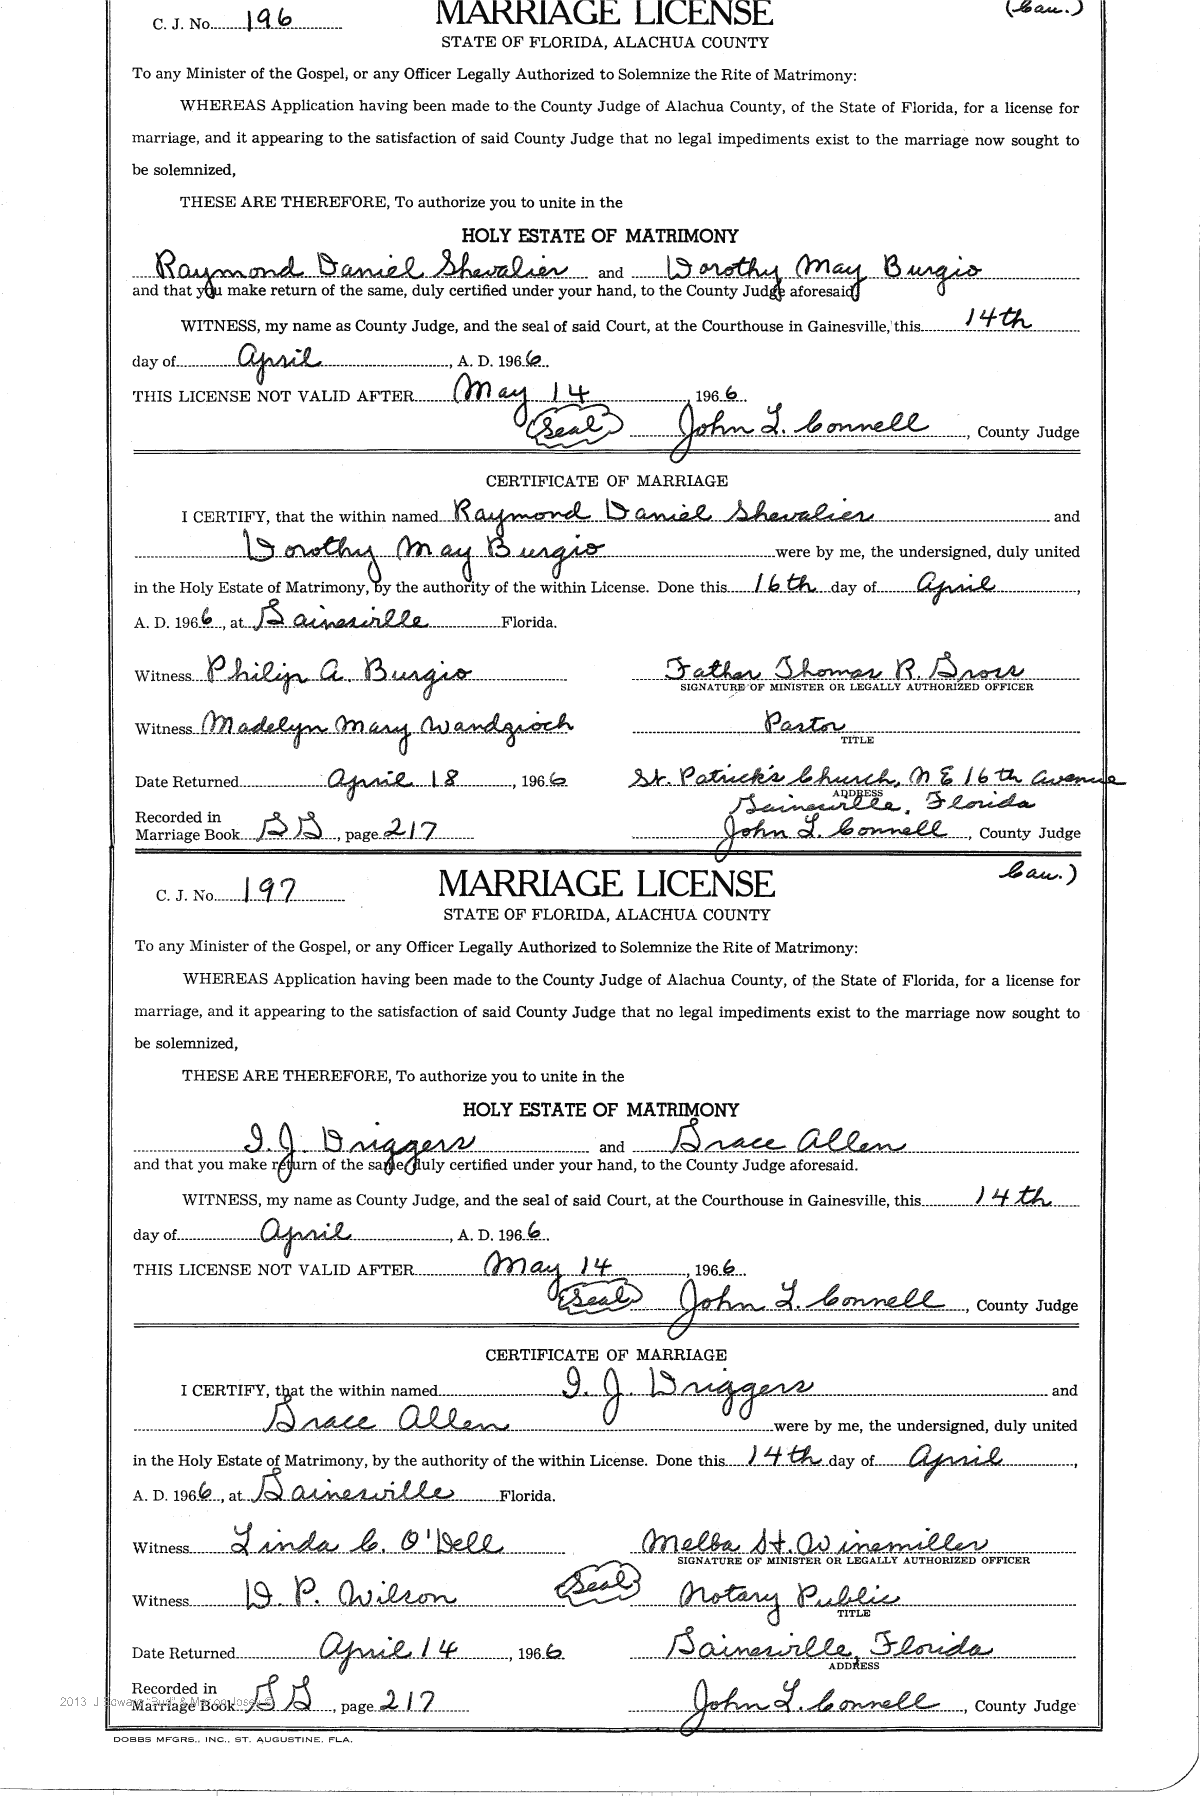 C. J. No. 196 MARRIAGE LICENSE (Cau.)
STATE OF FLORIDA, ALACHUA COUNTY
To any Minister of the Gospel, or any Officer Legally Authorized to Solemnize the Rite of Matrimony:
WHEREAS Application having been made to the County Judge of Alachua County, of the State of Florida, for a license for
marriage, and it appearing to the satisfaction of said County Judge that no legal impediments exist to the marriage now sought to
be solemnized,
THESE ARE THEREFORE, To authorize you to unite in the
HOLY ESTATE OF MATRIMONY
Raymond Daniel Shevalier and Dorothy May Burgio
and that you make return of the same, duly certified under your hand, to the County Judge aforesaid.
WITNESS, my name as County Judge, and the seal of said Court, at the Courthouse in Gainesville, this 14th
day of April, A. D. 1966.
THIS LICENSE NOT VALID AFTER May 14, 1966.
(Seal) John L. Connell, County Judge
CERTIFICATE OF MARRIAGE
I CERTIFY, that the within named Raymond Daniel Shevalier and
Dorothy May Burgio were by me, the undersigned, duly united
in the Holy Estate of Matrimony, by the authority of the within License. Done this 16th day of April,
A. D. 1966, at Gainesville Florida.
Witness Philip A. Burgio Father Thomas R. Gross
SIGNATURE OF MINISTER OR LEGALLY AUTHORIZED OFFICER
Witness Madelyn Mary Wandzioch Pastor
TITLE
Date Returned April 18, 1966 St. Patrick's Church, N E 16th Avenue
ADDRESS
Gainesville, Florida
Recorded in
Marriage Book SS, page 217 John L. Connell, County Judge
C. J. No. 197 MARRIAGE LICENSE Cau.)
STATE OF FLORIDA, ALACHUA COUNTY
To any Minister of the Gospel, or any Officer Legally Authorized to Solemnize the Rite of Matrimony:
WHEREAS Application having been made to the County Judge of Alachua County, of the State of Florida, for a license for
marriage, and it appearing to the satisfaction of said County Judge that no legal impediments exist to the marriage now sought to
be solemnized,
THESE ARE THEREFORE, To authorize you to unite in the
HOLY ESTATE OF MATRIMONY
I. J. Driggers and Grace Allen
and that you make return of the same, duly certified under your hand, to the County Judge aforesaid.
WITNESS, my name as County Judge, and the seal of said Court, at the Courthouse in Gainesville, this 14th
day of April, A. D. 1966.
THIS LICENSE NOT VALID AFTER May 14, 1966.
(Seal) John L. Connell, County Judge
CERTIFICATE OF MARRIAGE
I CERTIFY, that the within named I. J. Driggers and
Grace Allen were by me, the undersigned, duly united
in the Holy Estate of Matrimony, by the authority of the within License. Done this 14th day of April,
A. D. 1966, at Gainesville Florida.
Witness Linda C. O'Dell Melba St. Winemiller
SIGNATURE OF MINISTER OR LEGALLY AUTHORIZED OFFICER
Witness D. P. Wilson (Seal) Notary Public
TITLE
Date Returned April 14, 1966 Gainesville, Florida
ADDRESS
Recorded in
Marriage Book SS, page 217 John L. Connell, County Judge
2013 J Edward "Bud" & Marion Josey ©
DOBBS MFGRS., INC., ST. AUGUSTINE, FLA.